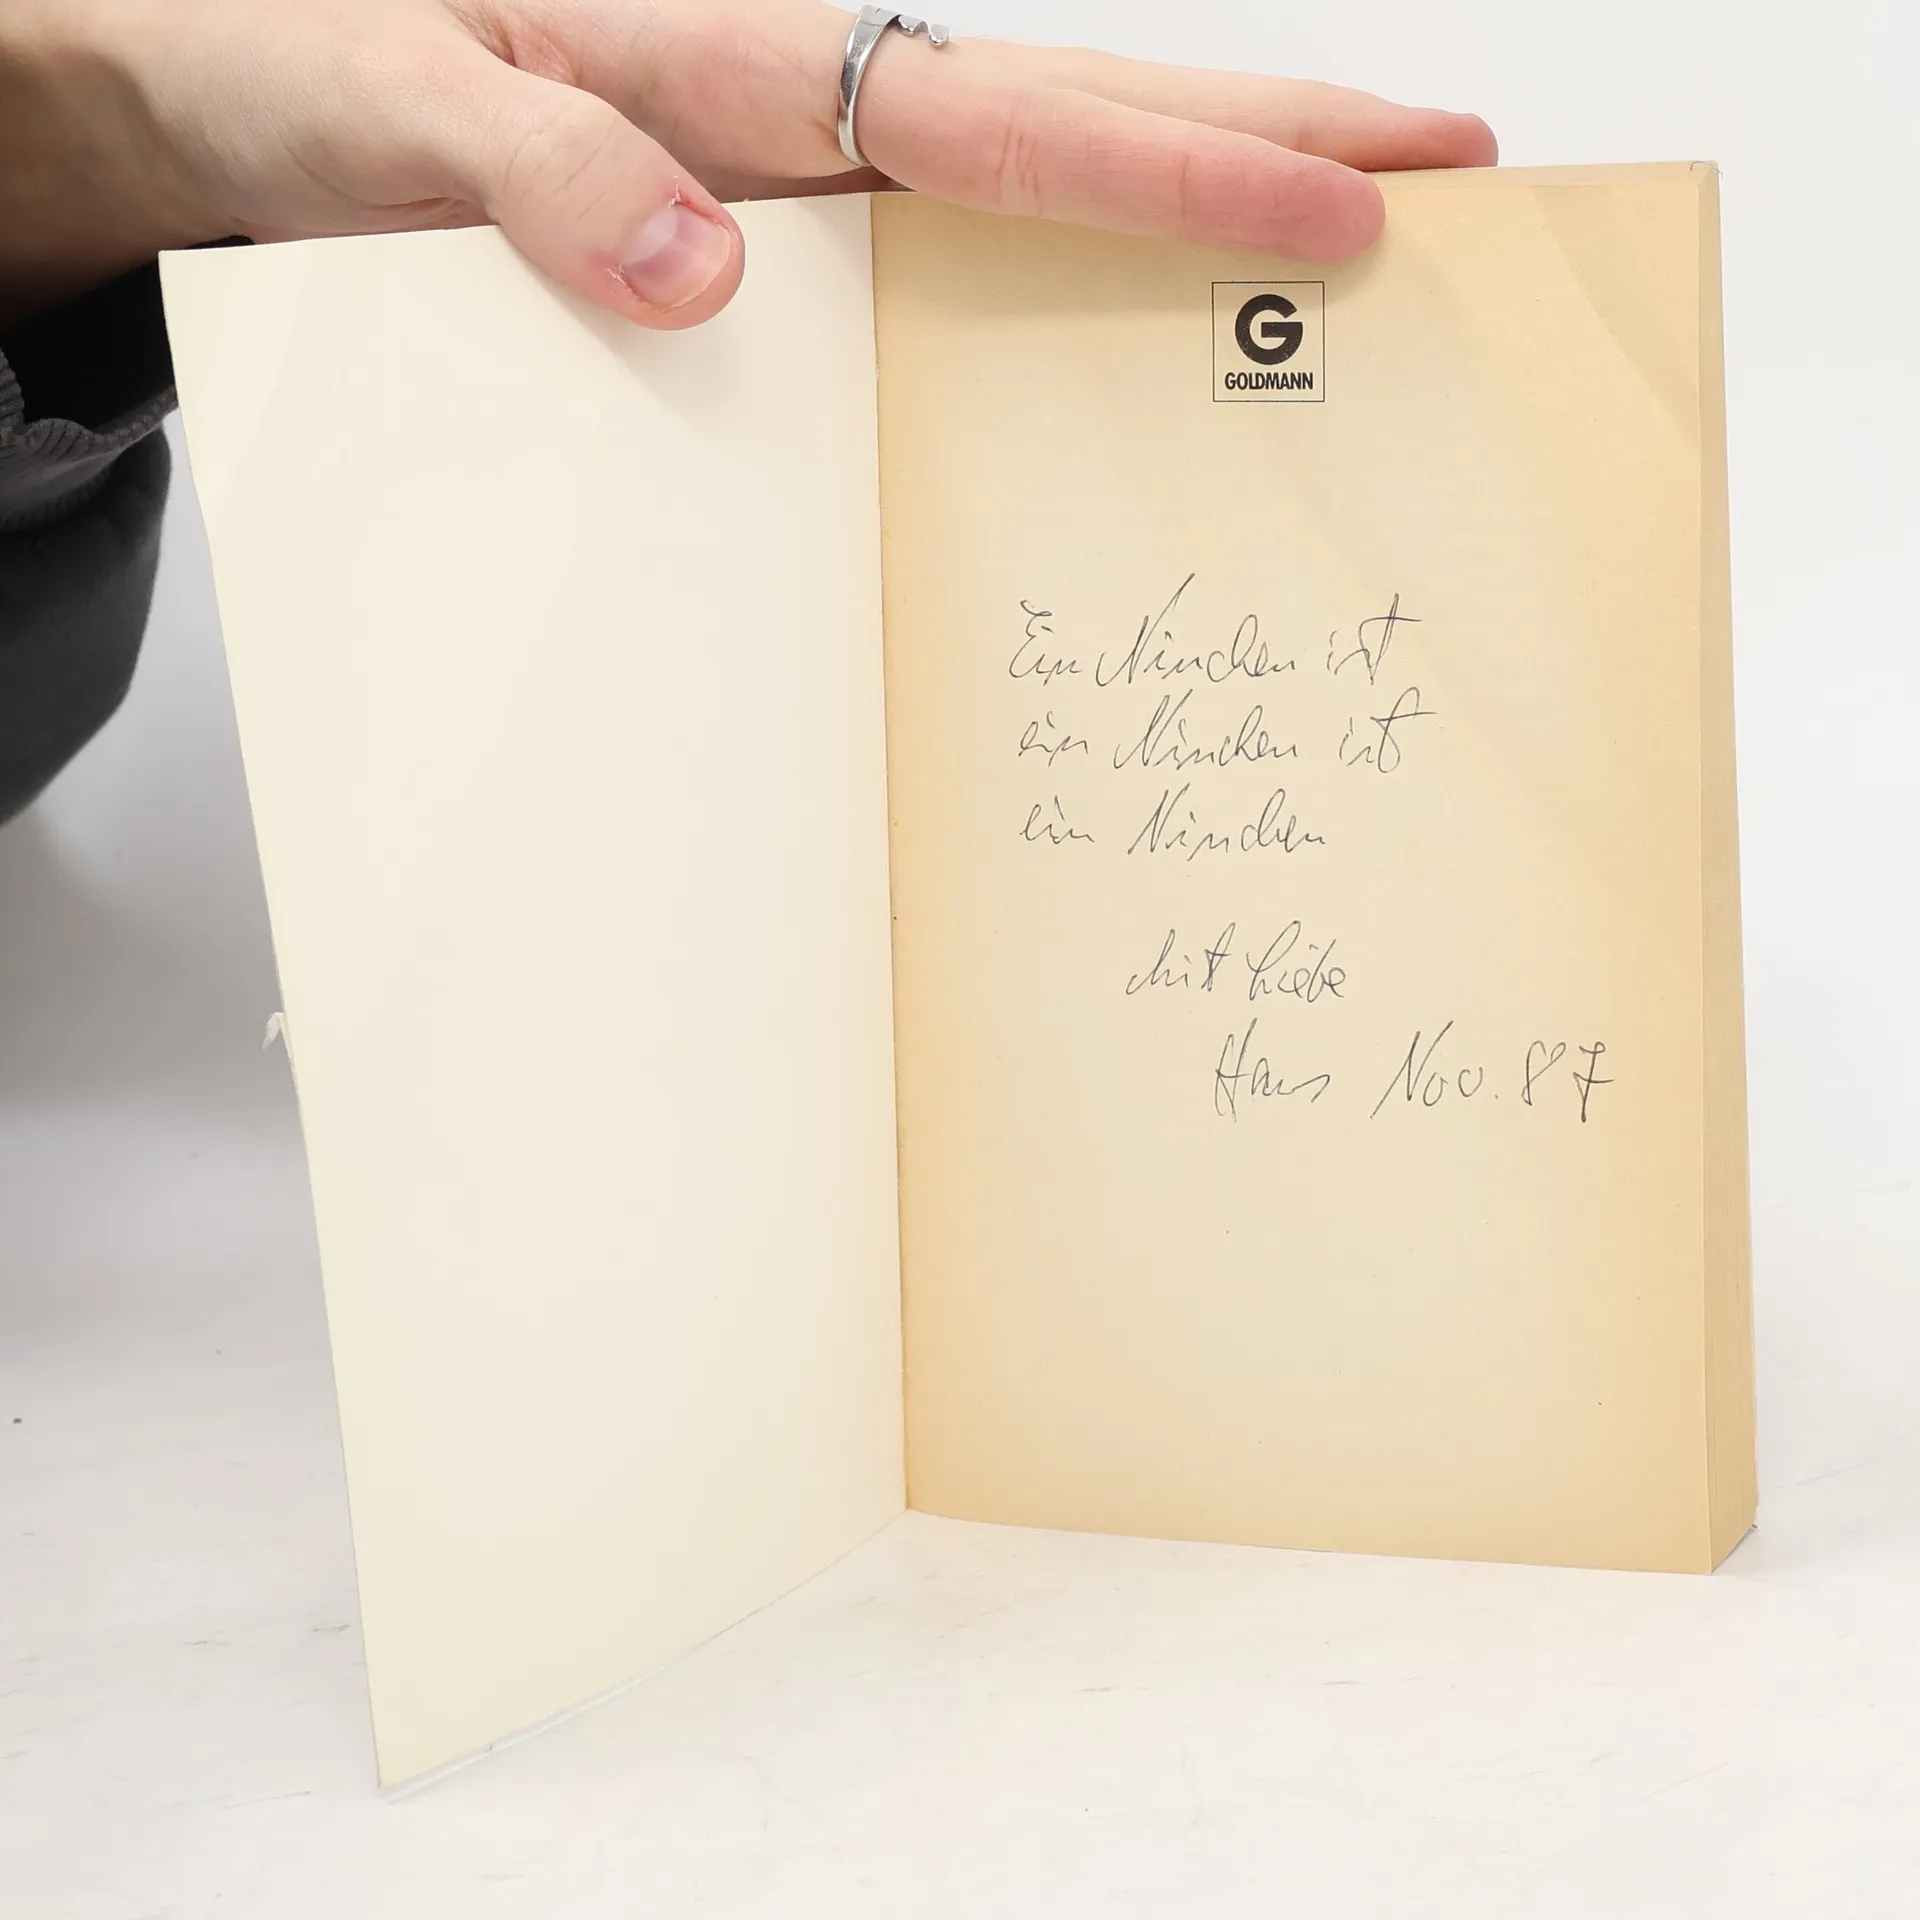 G
GOLDMANN
Ein Ninchen ist
ein Ninchen ist
ein Ninchen
Mit Liebe
Hans Nov. 87